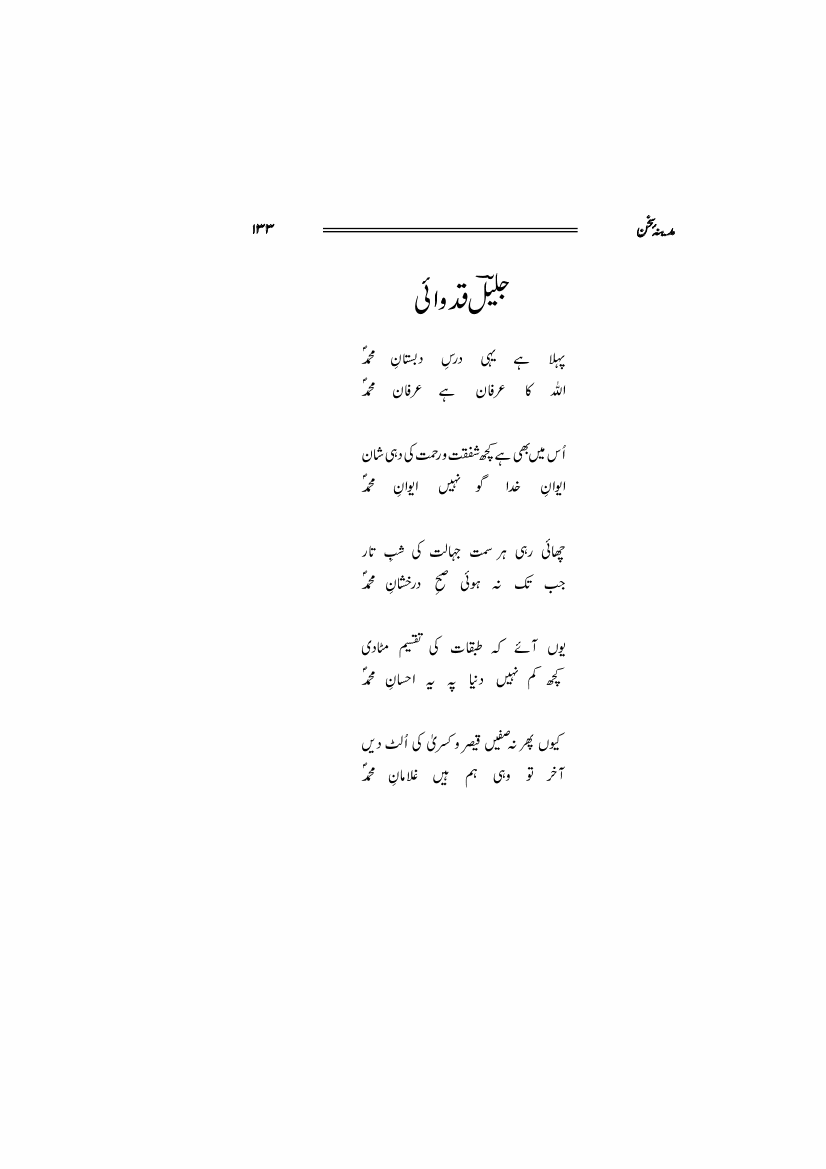 مدینۂ سخن ۱۳۳
جلیلؔ قدوائی
پہلا ہے یہی درسِ دبستانِ محمدؐ
اللہ کا عرفان ہے عرفان محمدؐ
اُس میں بھی ہے کچھ شفقت و رحمت کی وہی شان
ایوانِ خدا گو نہیں ایوانِ محمدؐ
چھائی رہی ہر سمت جہالت کی شبِ تار
جب تک نہ ہوئی صبحِ درخشانِ محمدؐ
یوں آئے کہ طبقات کی تقسیم مٹادی
کچھ کم نہیں دنیا پہ یہ احسانِ محمدؐ
کیوں پھر نہ صفیں قیصر و کسریٰ کی اُلٹ دیں
آخر تو وہی ہم ہیں غلامانِ محمدؐ